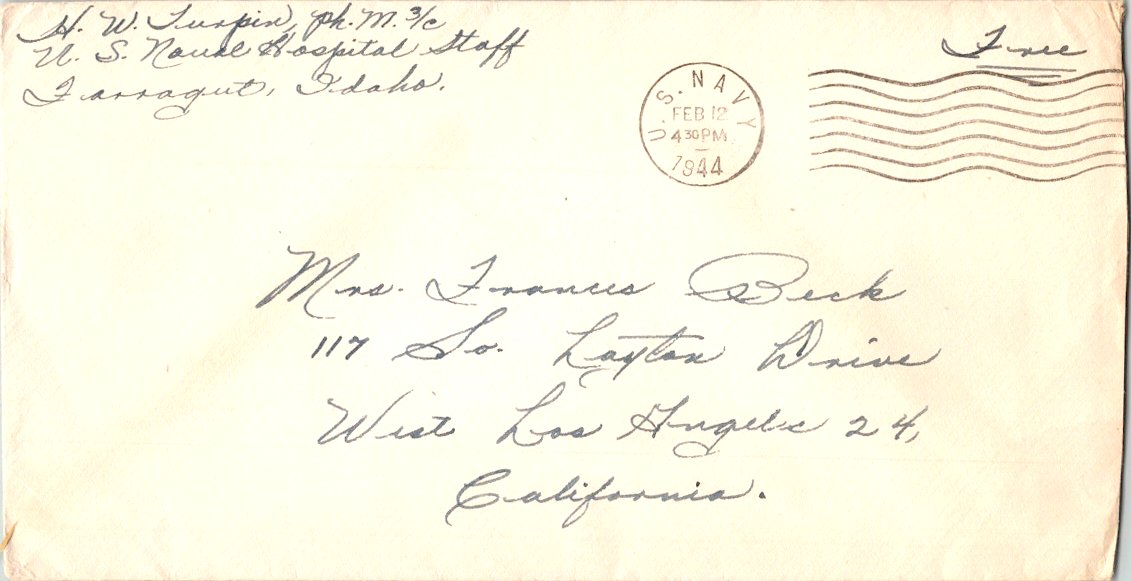 H. W. Turpin, Ph. M. 3/c
U. S. Naval Hospital Staff
Farragut, Idaho.
Free
U.S. NAVY
FEB 12
4 30 PM
1944
Mrs. Frances Beck
117 So. Layton Drive
West Los Angeles 24,
California.